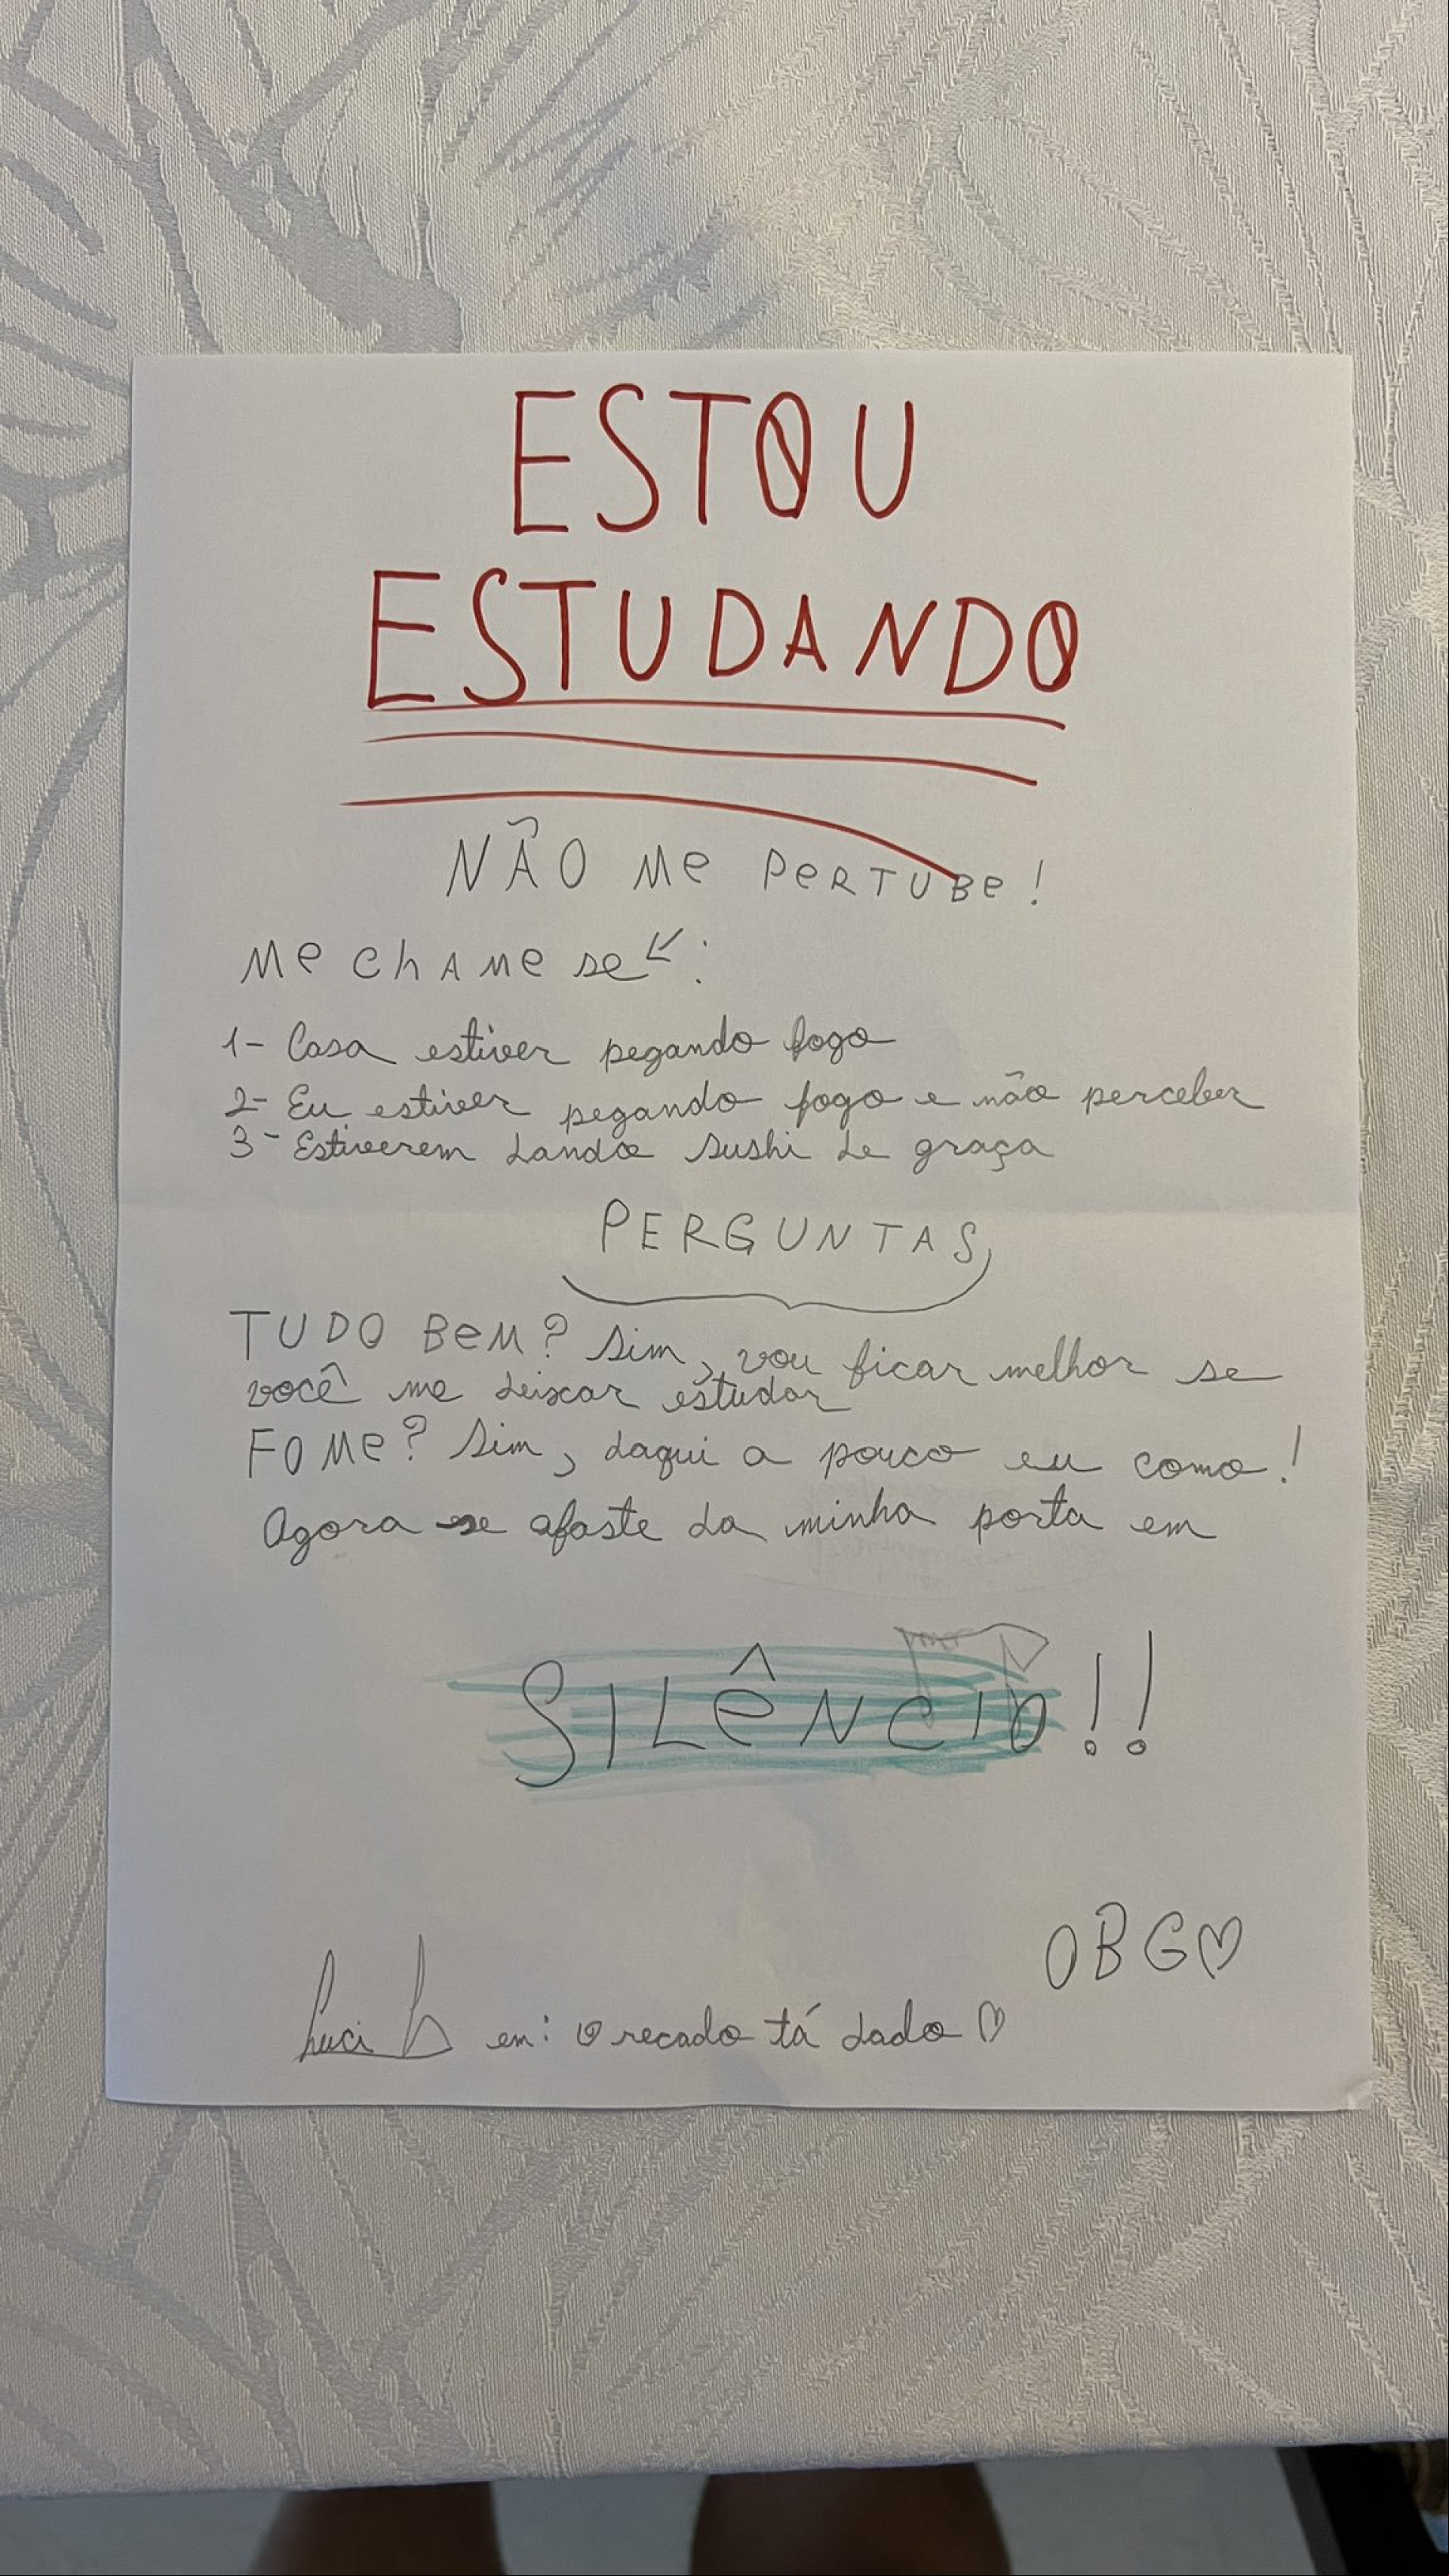 ESTOU
ESTUDANDO
NÃO Me PeRTUBe!
Me chAMe se ↙:
1- Casa estiver pegando fogo
2- Eu estiver pegando fogo e não perceber
3- Estiverem dando sushi de graça
PERGUNTAS
TUDO BeM? Sim, vou ficar melhor se
você me deixar estudar
FOMe? Sim, daqui a pouco eu como!
Agora se afaste da minha porta em
SILêNcIO!!
OBG♡
Luci em: O recado tá dado ♡